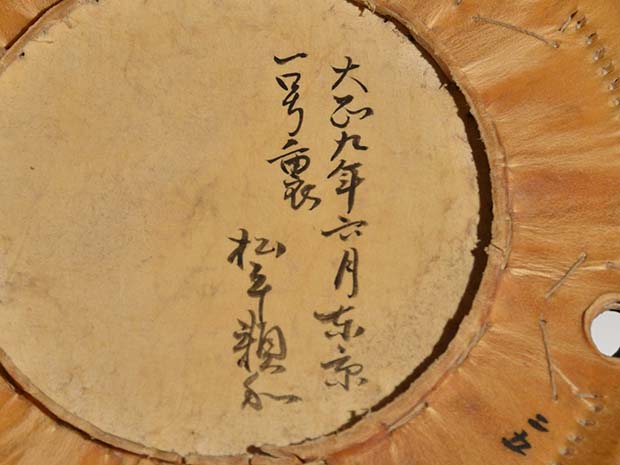 大正九年六月東京
一号裏
松平頼和
二